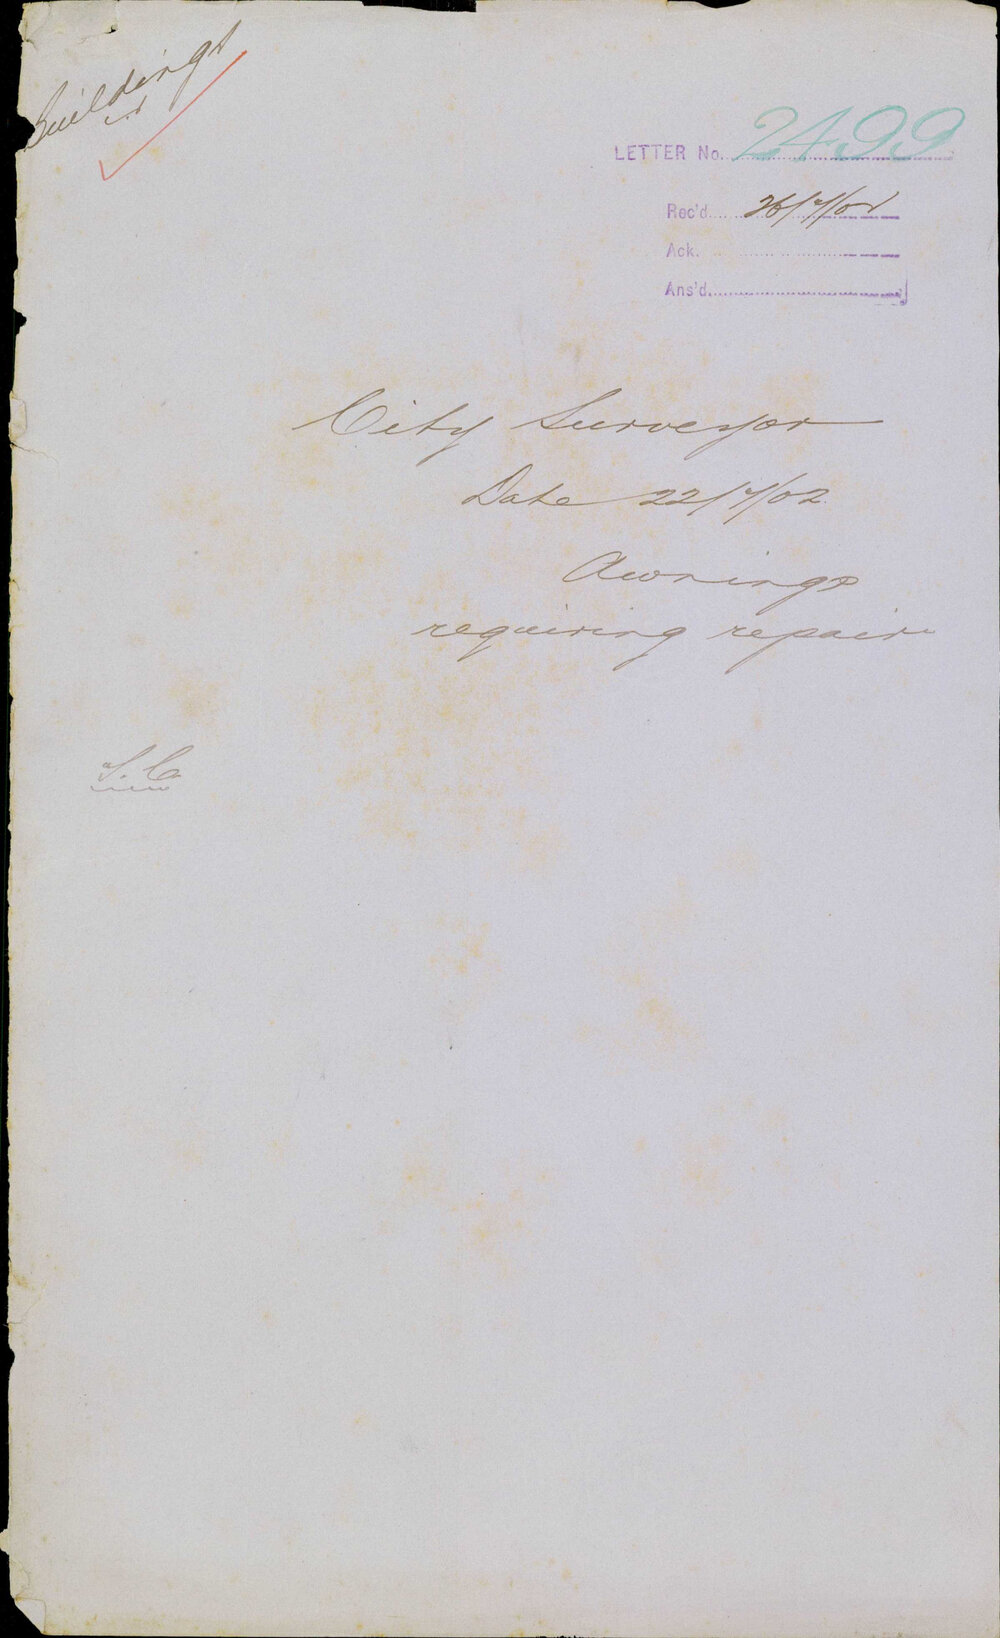 Buildings
LETTER No. 2499
Rec'd 26/7/02
Ack.
Ans'd.
City Surveyor
Date 22/7/02
Awnings
requiring repair